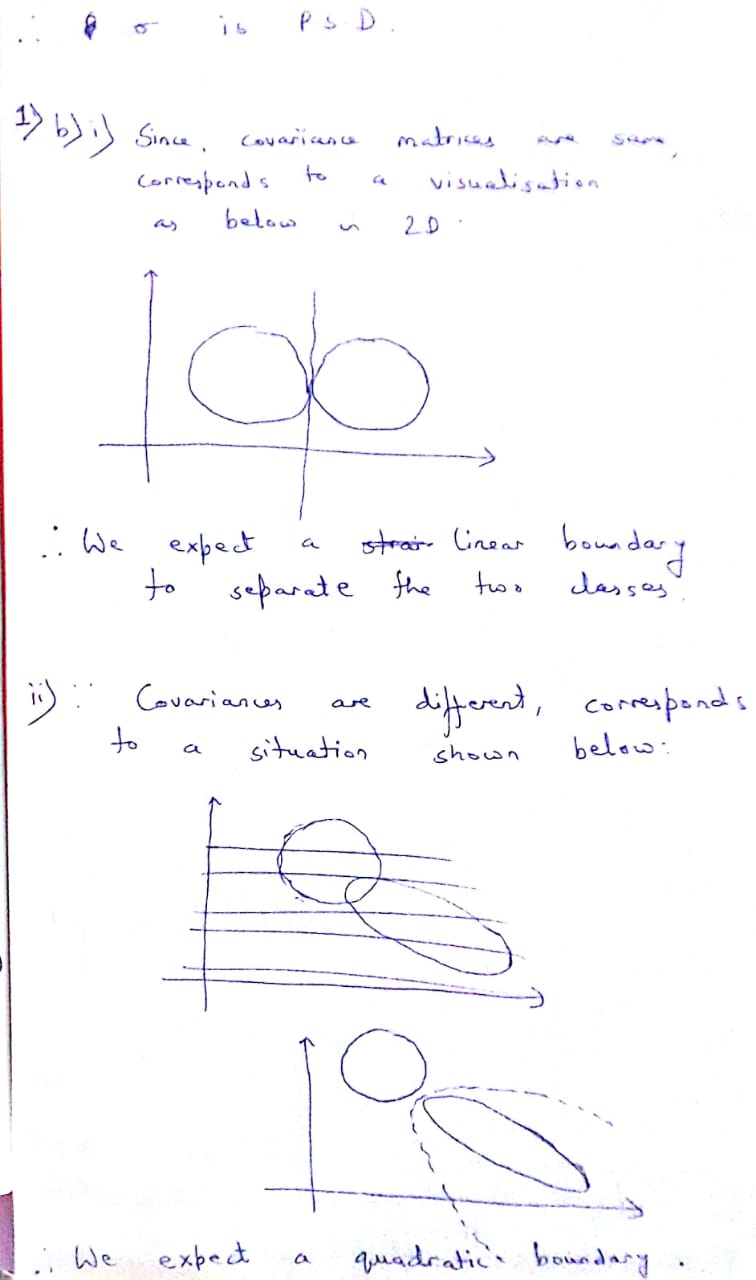 ∴ σ is PSD.
1) b) i) Since, covariance matrices are same,
corresponds to a visualisation
as below in 2D.
∴ We expect a strai linear boundary
to separate the two classes.
ii) ∵ Covariances are different, corresponds
to a situation shown below:
∴ We expect a quadratic boundary.